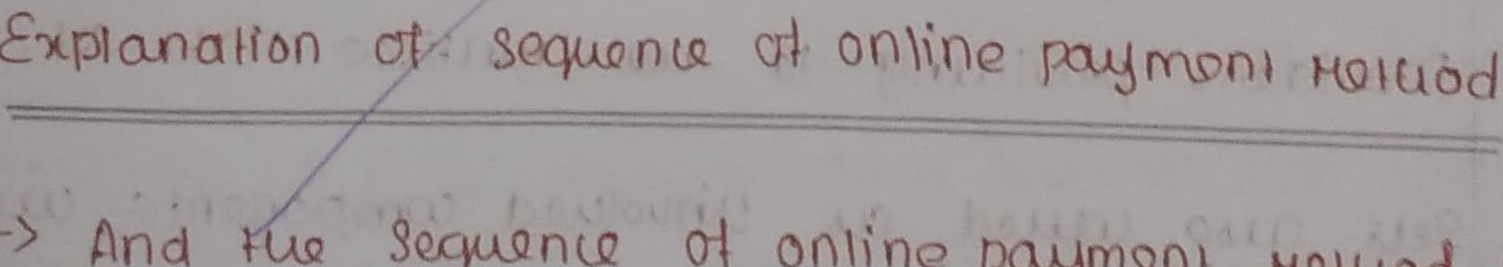 Explanation of sequence of online payment Method
-> And the sequence of online payment